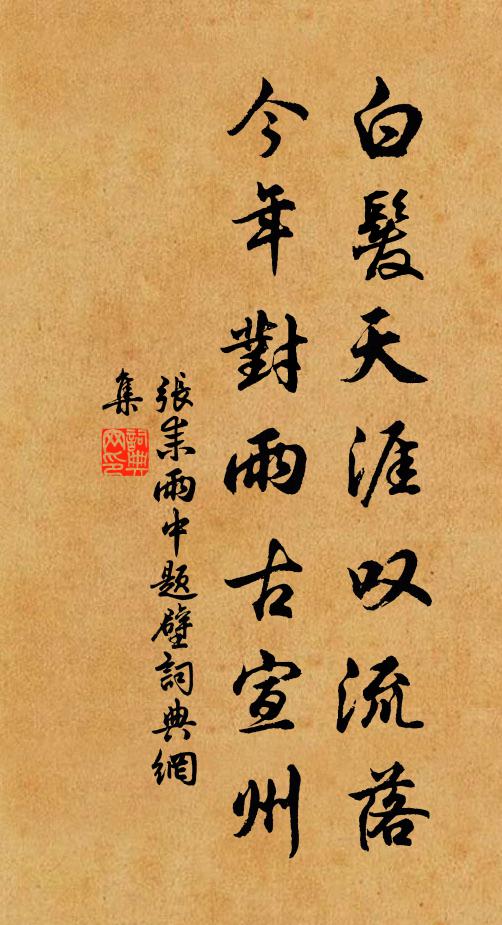 白髮天涯叹流落
今年對雨古宣州
張耒雨中題壁詞典網
集
詞典网印